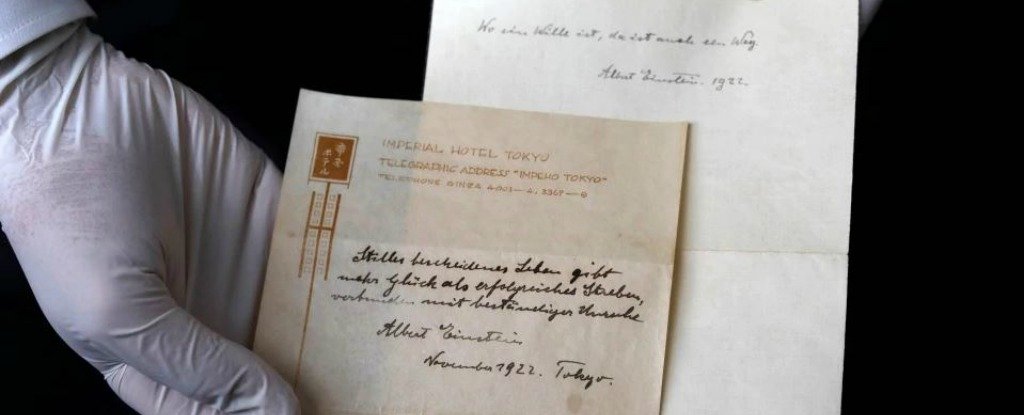 Wo ein Wille ist, da ist auch ein Weg.
Albert Einstein. 1922.
帝国
ホテル
IMPERIAL HOTEL TOKYO
TELEGRAPHIC ADDRESS "IMPEHO TOKYO"
TELEPHONE GINZA 4003—4, 3367—8
Stilles bescheidenes Leben gibt
mehr Glück als erfolgreiches Streben,
verbunden mit beständiger Unruhe
Albert Einstein
November 1922. Tokyo.